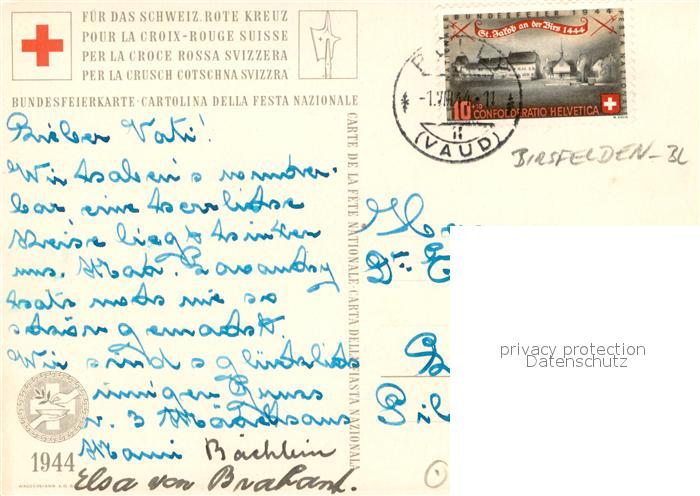 FÜR DAS SCHWEIZ. ROTE KREUZ
POUR LA CROIX-ROUGE SUISSE
PER LA CROCE ROSSA SVIZZERA
PER LA CRUSCH COTSCHNA SVIZZRA
BUNDESFEIERKARTE · CARTOLINA DELLA FESTA NAZIONALE
CARTE DE LA FETE NATIONALE · CARTA DELLA FIASTA NAZIONALA
BUNDESFEIER 1944
St. Jakob an der Birs 1444
10+10
CONFOEDERATIO HELVETICA
-1.VIII.44.-11
(VAUD)
BIRSFELDEN-BL
Lieber Vati!
Wir haben's wunder-
bar eine herrliche
Reise liegt hinter
uns. Mad.
hats uns so
schön gemacht.
Wir sind so glücklich
innigen Gruss
v. 3 Mädchens
Mami Bächlein
Elsa von Brabant.
Dr. E
Pil
1944
privacy protection
Datenschutz